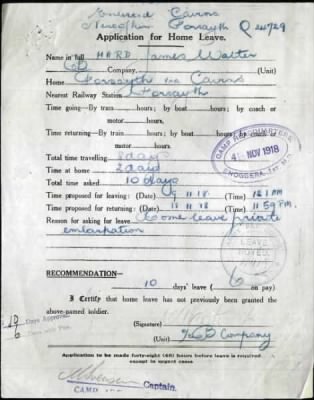 Enlisted Cairns
Direction Forsyth Q 24729
Application for Home Leave.
Name in full HARD James Walter
CB Company, (Unit)
Forsayth via Cairns
Nearest Railway Station Forsayth
Time going—By train hours; by boat hours; by coach or
motor hours.
Time returning—By train hours; by boat hours; by coach or
motor hours.
Total time travelling 8 days
Time at home 2 days
Total time asked 10 days
Time proposed for leaving: (Date) 9 11 18 (Time) 12 1 AM
Time proposed for returning: (Date) 18 11 18 (Time) 11 59 PM.
Reason for asking for leave Home leave private
embarkation
CAMP HEADQUARTERS
4 NOV 1918
ENOGGERA, 1st M.D.
LEAVE
NOTED
RECOMMENDATION—
10 days' leave ( 6 on pay)
I Certify that home leave has not previously been granted the
above-named soldier.
10 Days Approved
6
(Signature)
(Unit) CB Company
Application to be made forty-eight (48) hours before leave is required,
except in urgent case
Captain.
CAMP